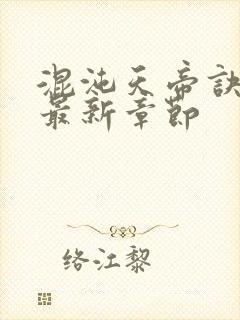 混沌天帝诀
最新章节
络江黎